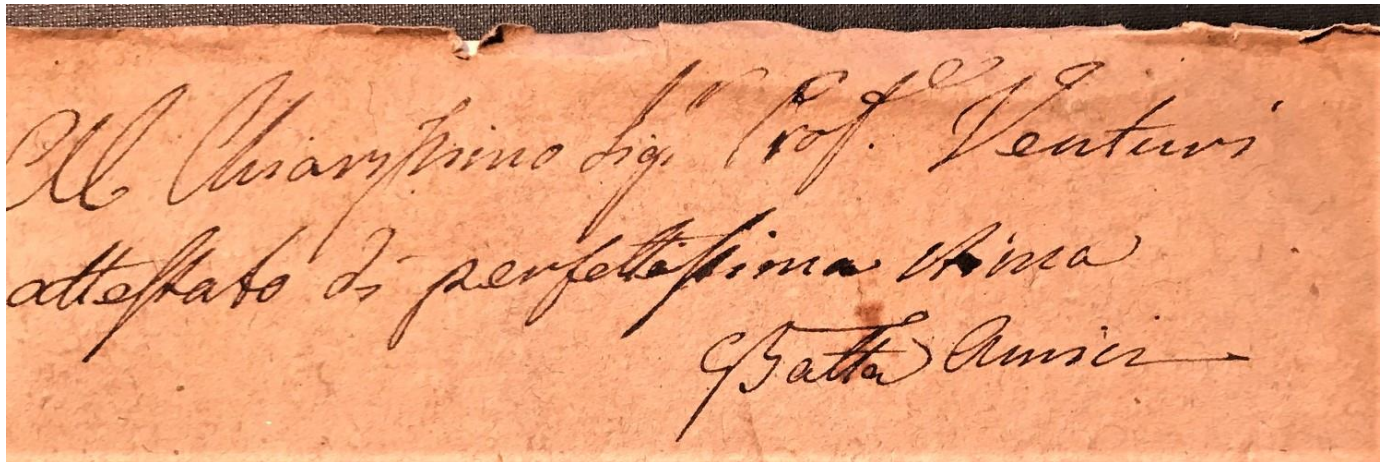 Al Chiarissimo Sigr Profe Venturi
attestato di perfettissima stima
GBatta Amici